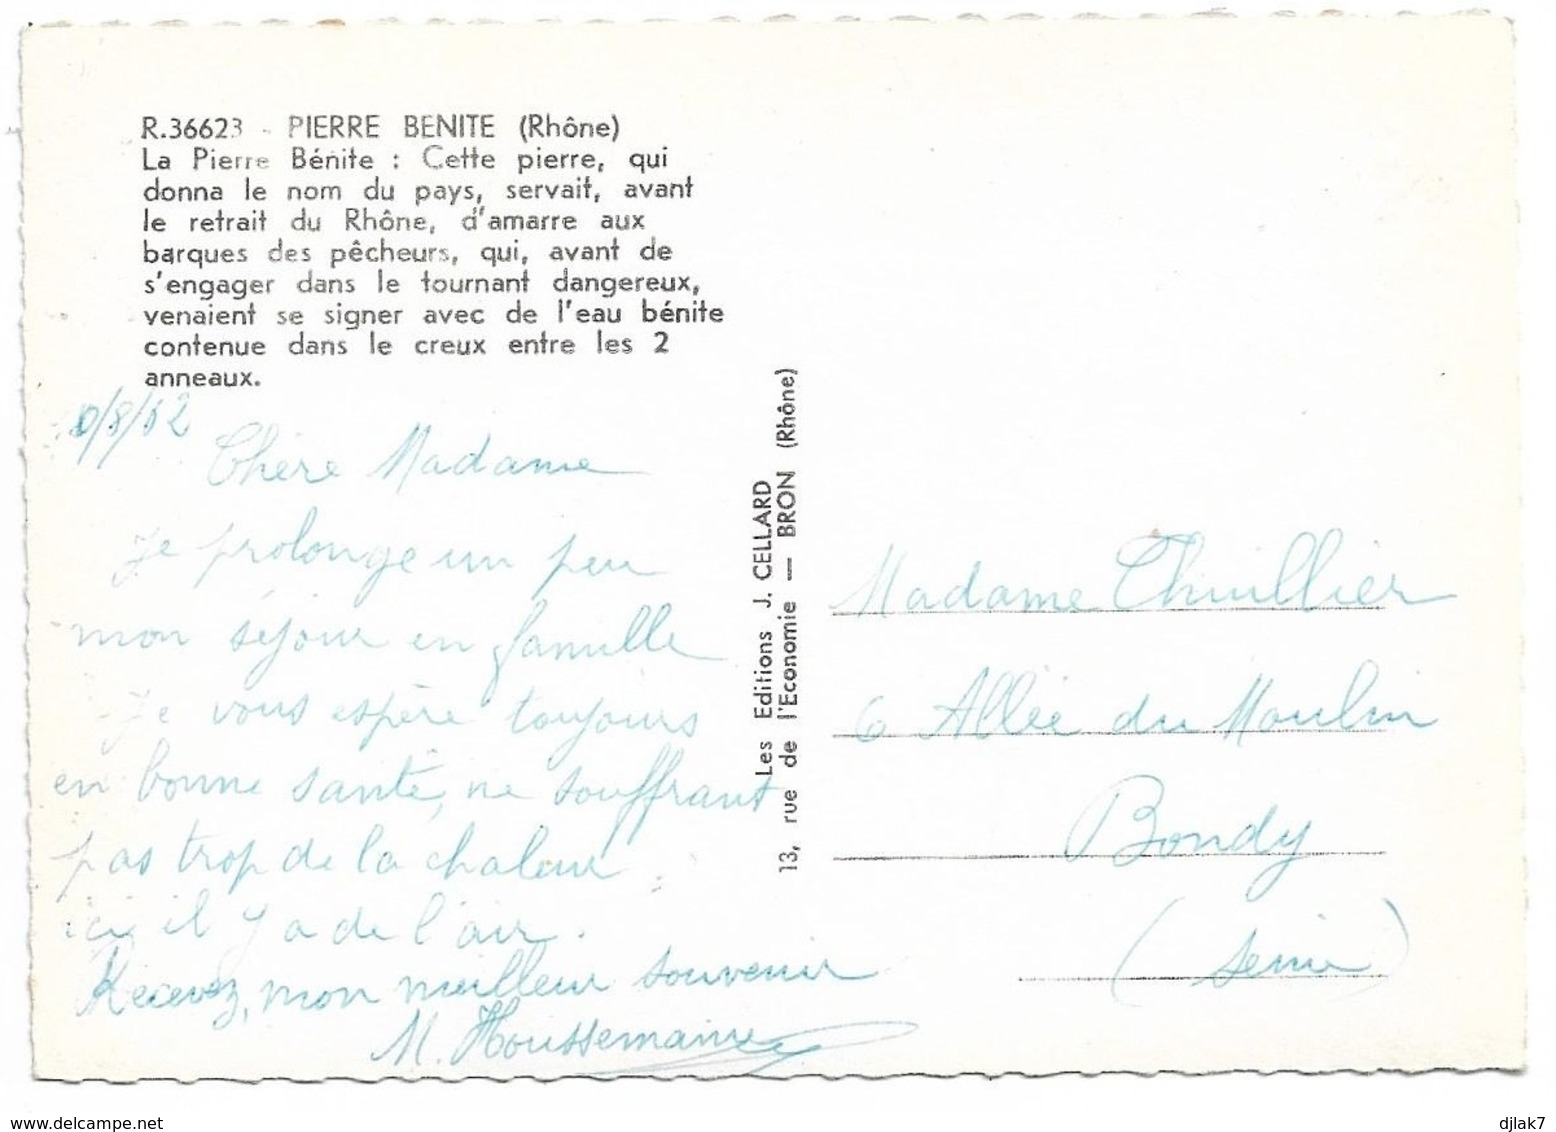 R.36623 - PIERRE BENITE (Rhône)
La Pierre Bénite : Cette pierre, qui
donna le nom du pays, servait, avant
le retrait du Rhône, d'amarre aux
barques des pêcheurs, qui, avant de
s'engager dans le tournant dangereux,
venaient se signer avec de l'eau bénite
contenue dans le creux entre les 2
anneaux.
/8/62
Chère Madame
Je prolonge un peu
mon séjour en famille
Je vous espère toujours
en bonne santé, ne souffrant
pas trop de la chaleur
ici il y a de l'air.
Recevez, mon meilleur souvenir
M. Houssemaine
Les Editions J. CELLARD
13, rue de l'Economie — BRON (Rhône)
Madame Thuillier
6 Allée du Moulin
Bondy
(Seine)
www.delcampe.net
djlak7